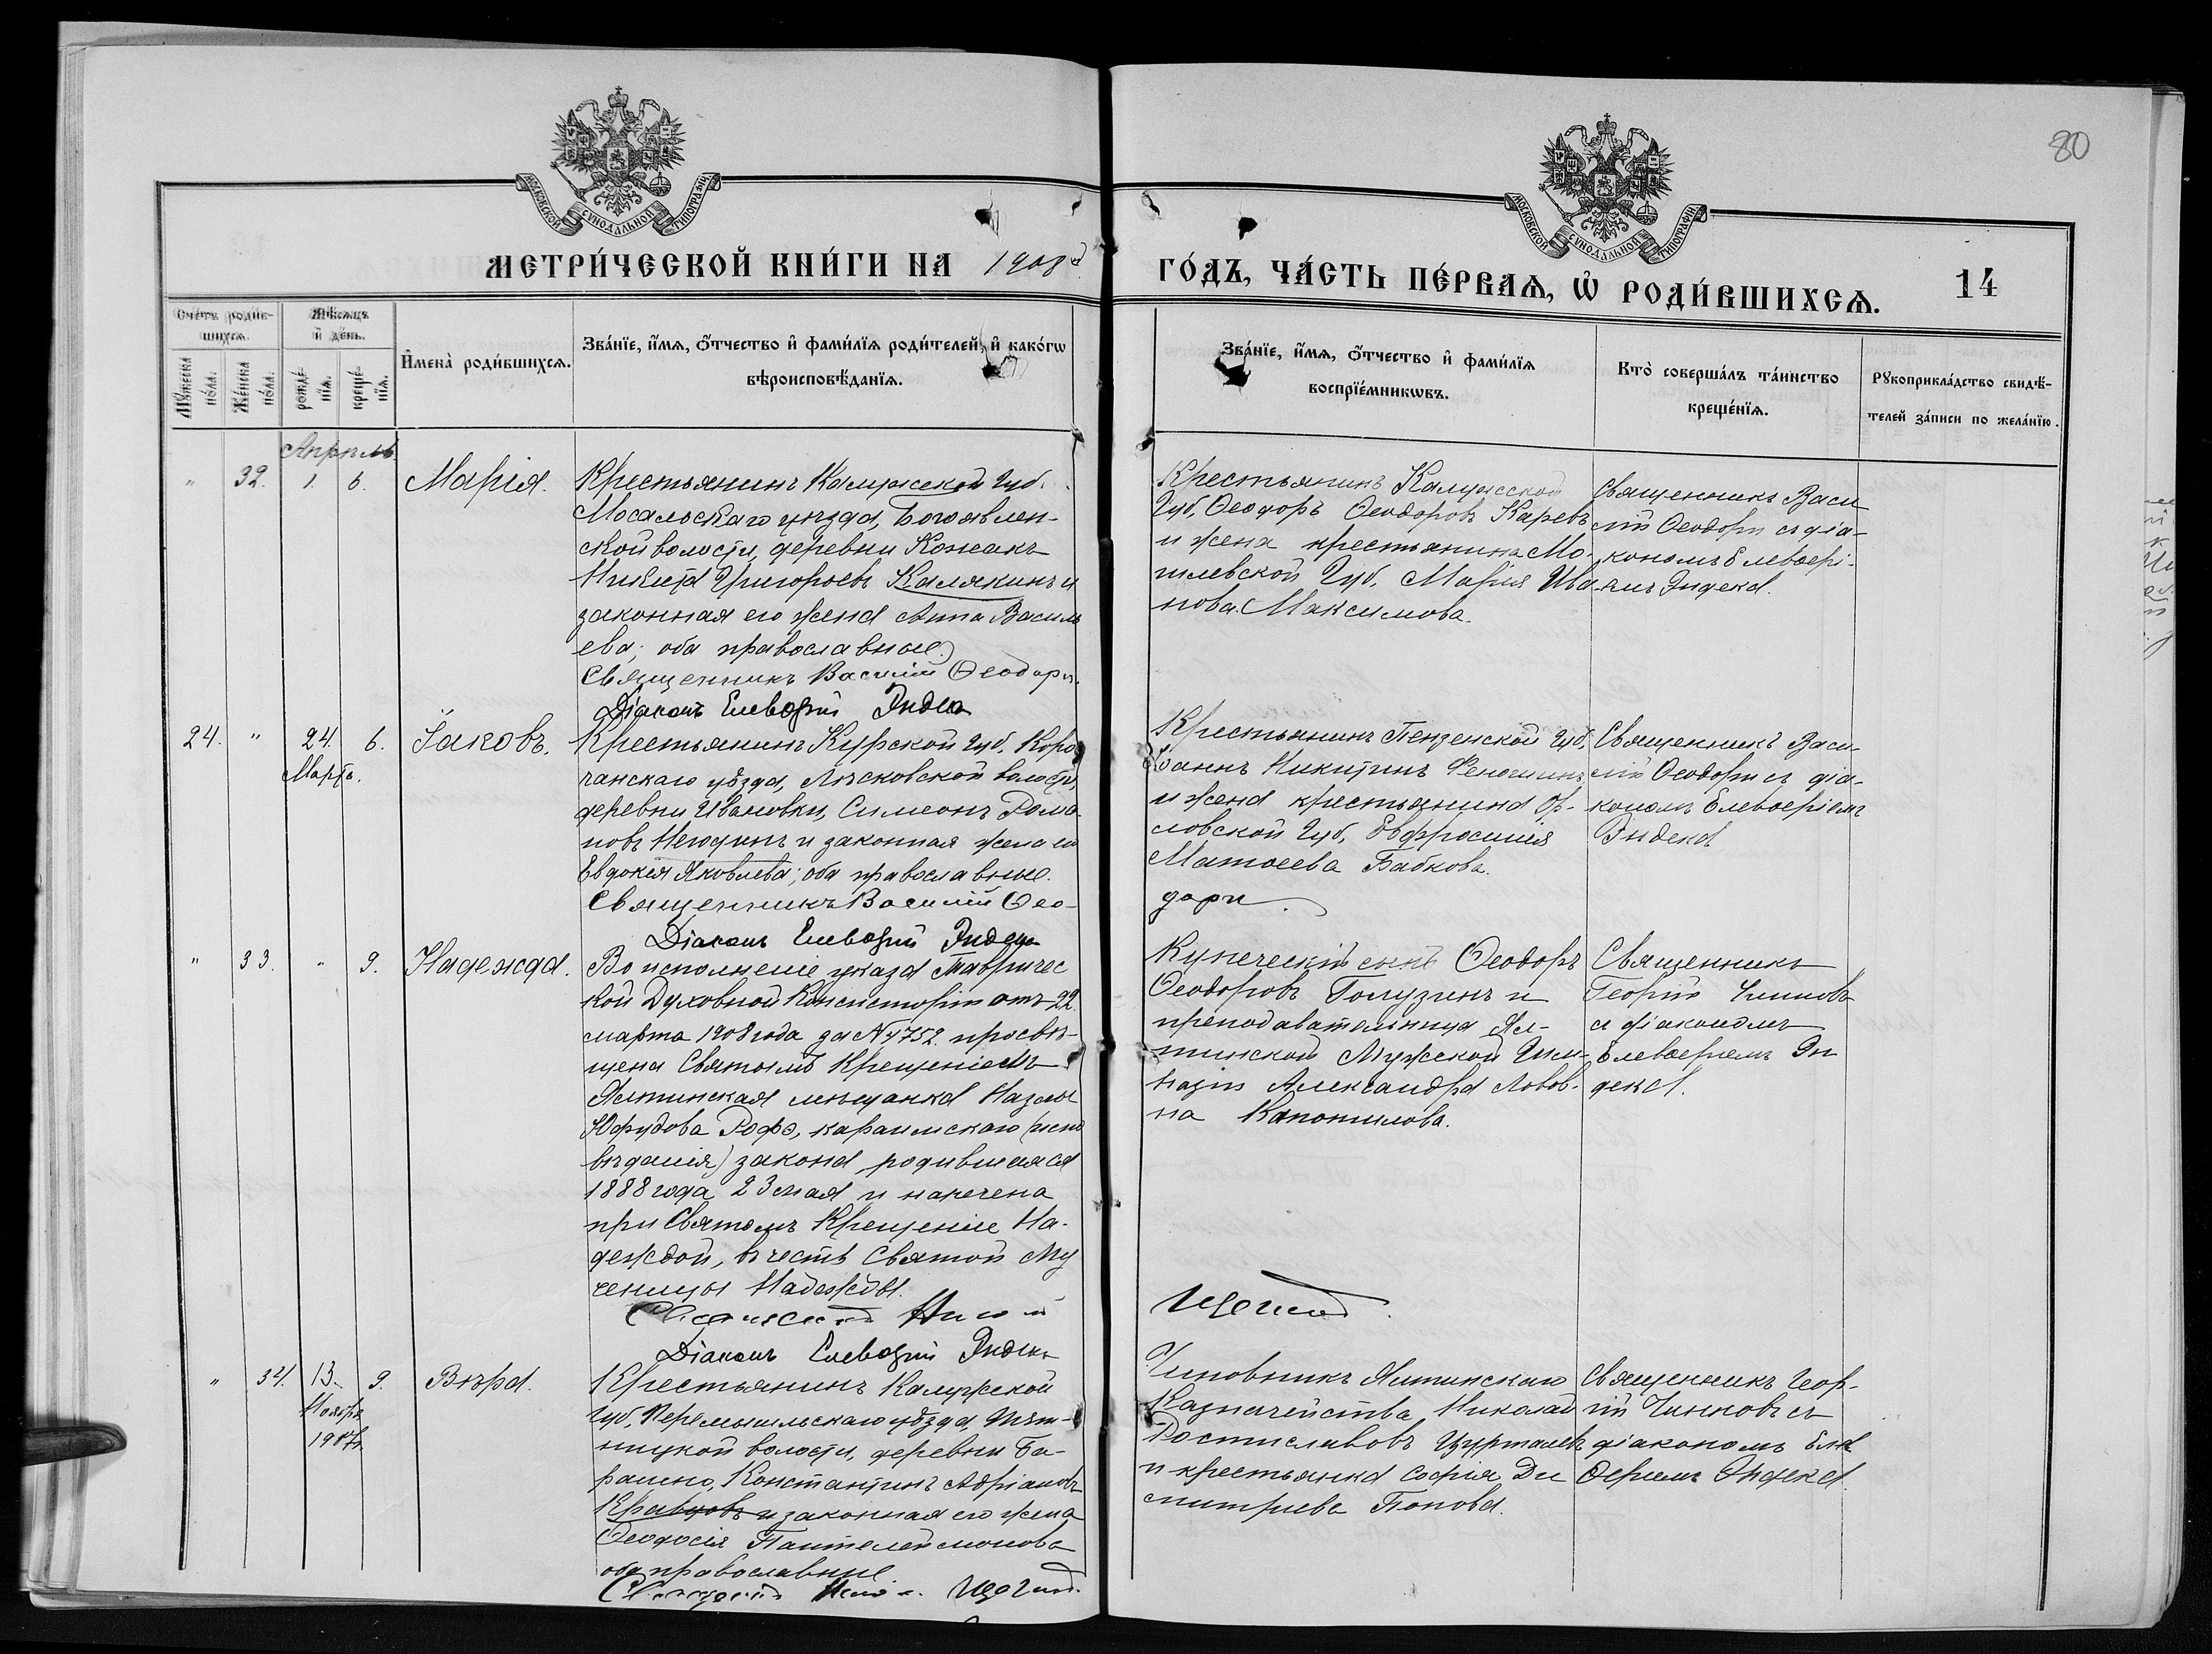 80
МОСКОВСКОЙ СѴНОДАЛЬНОЙ ТИПОГРАФІИ
МОСКОВСКОЙ СѴНОДАЛЬНОЙ ТИПОГРАФІИ
МЕТРИ́ЧЕСКОЙ КНИ́ГИ НА 1908й
ГО́ДЪ, ЧА́СТЬ ПЕ́РВАѦ, Ѡ҆ РОДИ́ВШИХСѦ.
14
Сче́тъ роди́в-
шихсѧ.
Мѣ́сѧцъ
и҆ де́нь.
Мꙋ́жеска
по́ла.
Же́нска
по́ла.
рожде́-
нїѧ.
креще́-
нїѧ.
И҆мена̀ роди́вшихсѧ.
Зва́нїе, и҆́мѧ, ѻ҆́тчество и҆ фами́лїѧ роди́телей, и҆ како́гѡ
вѣроисповѣ́данїѧ.
Зва́нїе, и҆́мѧ, ѻ҆́тчество и҆ фами́лїѧ
воспрїе́мникѡвъ.
Кто̀ соверша́лъ та́инство
креще́нїѧ.
Рꙋкоприкла́дство свидѣ́-
телей за́писи по жела́нїю.
Апрѣль
" 32. 1. 6. Марія.
Крестьянинъ Калужской Губ.
Мосальскаго уѣзда, Богоявлен-
ской волости, деревни Кожакъ
Никита Григорьевъ Калякинъ и
законная его жена Анна Василь
ева; оба православные.
Священникъ Василій Ѳеодори.
Діаконъ Елевѳерій Индека
Крестьянинъ Калужской
Губ. Ѳеодоръ Ѳеодоровъ Каревъ
и жена крестьянина Мо-
гилевской Губ. Марія Ива-
нова Максимова.
Священникъ Васи
лій Ѳеодори съ діа-
кономъ Елевѳері-
емъ Индека.
24. " 24. 6. Іаковъ.
Марта.
Крестьянинъ Курской Губ. Коро
чанскаго уѣзда, Лѣсковской волости,
деревни Ивановки, Симеонъ Рома
новъ Негодинъ и законная жена его
Евдокія Яковлева; оба православные.
Священникъ Василій Ѳео-
дори.
Діаконъ Елевѳерій Индека
Крестьянинъ Пензенской Губ.
Іоаннъ Никитинъ
и жена крестьянина Ор-
ловской Губ. Евфросинія
Матѳеева Бабкова.
Священникъ Васи-
лій Ѳеодори съ діа-
кономъ Елевѳеріемъ
Индека
" 33. " 9. Надежда.
Во исполненіе указа Тавричес
кой Духовной Консисторіи отъ 22
марта 1908 года за № 4752 просвѣ-
щена Святымъ Крещеніемъ
Ялтинская мѣщанка Назлы
Юфудова Рофэ, караимскаго (испо
вѣданія) закона, родившаяся
1888 года 23 мая и наречена
при Святомъ Крещеніе На-
деждой, въ честь Святой Му
ченицы Надежды.
Діаконъ Елевѳерій Индека
Купеческій сынъ Ѳеодоръ
Ѳеодоровъ Голузинъ и
преподавательница Ял-
тинской Мужской Гим-
назіи Александра Львов-
на Капотилова.
Священникъ
Георгій Чинновъ
съ діакономъ
Елевѳеріемъ Ин
дека.
" 34. 13. 9. Вѣра.
Ноября
1907г.
Крестьянинъ Калужской
Губ. Перемышльскаго уѣзда,
ницкой волости, деревни Ба-
ранино, Константинъ Адріановъ
Кравцовъ и законная его жена
Ѳеодосія Пантелеймонова
оба православные
Чиновникъ Ялтинскаго
Казначейства Николай
Ростиславовъ
и крестьянка Софія Ди
митріева Попова.
Священникъ Геор-
гій Чинновъ съ
діакономъ Елев
ѳеріемъ Индека.